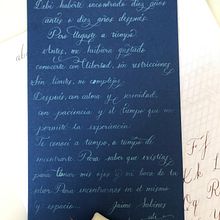 Debí haberte encontrado diez años
antes o diez años después.
Pero llegaste a tiempo
Antes, me hubiera gustado
conocerte con libertad, sin restricciones
Sin límites, ni complejos.
Después, con calma y serenidad,
con paciencia y el tiempo que me
permite la experiencia.
Te conocí a tiempo, a tiempo de
encontrarte Para saber que existías
para llenar mis ojos y mi boca de tu
Para encontrarnos en el mismo
y espacio...
Jaime Sabines